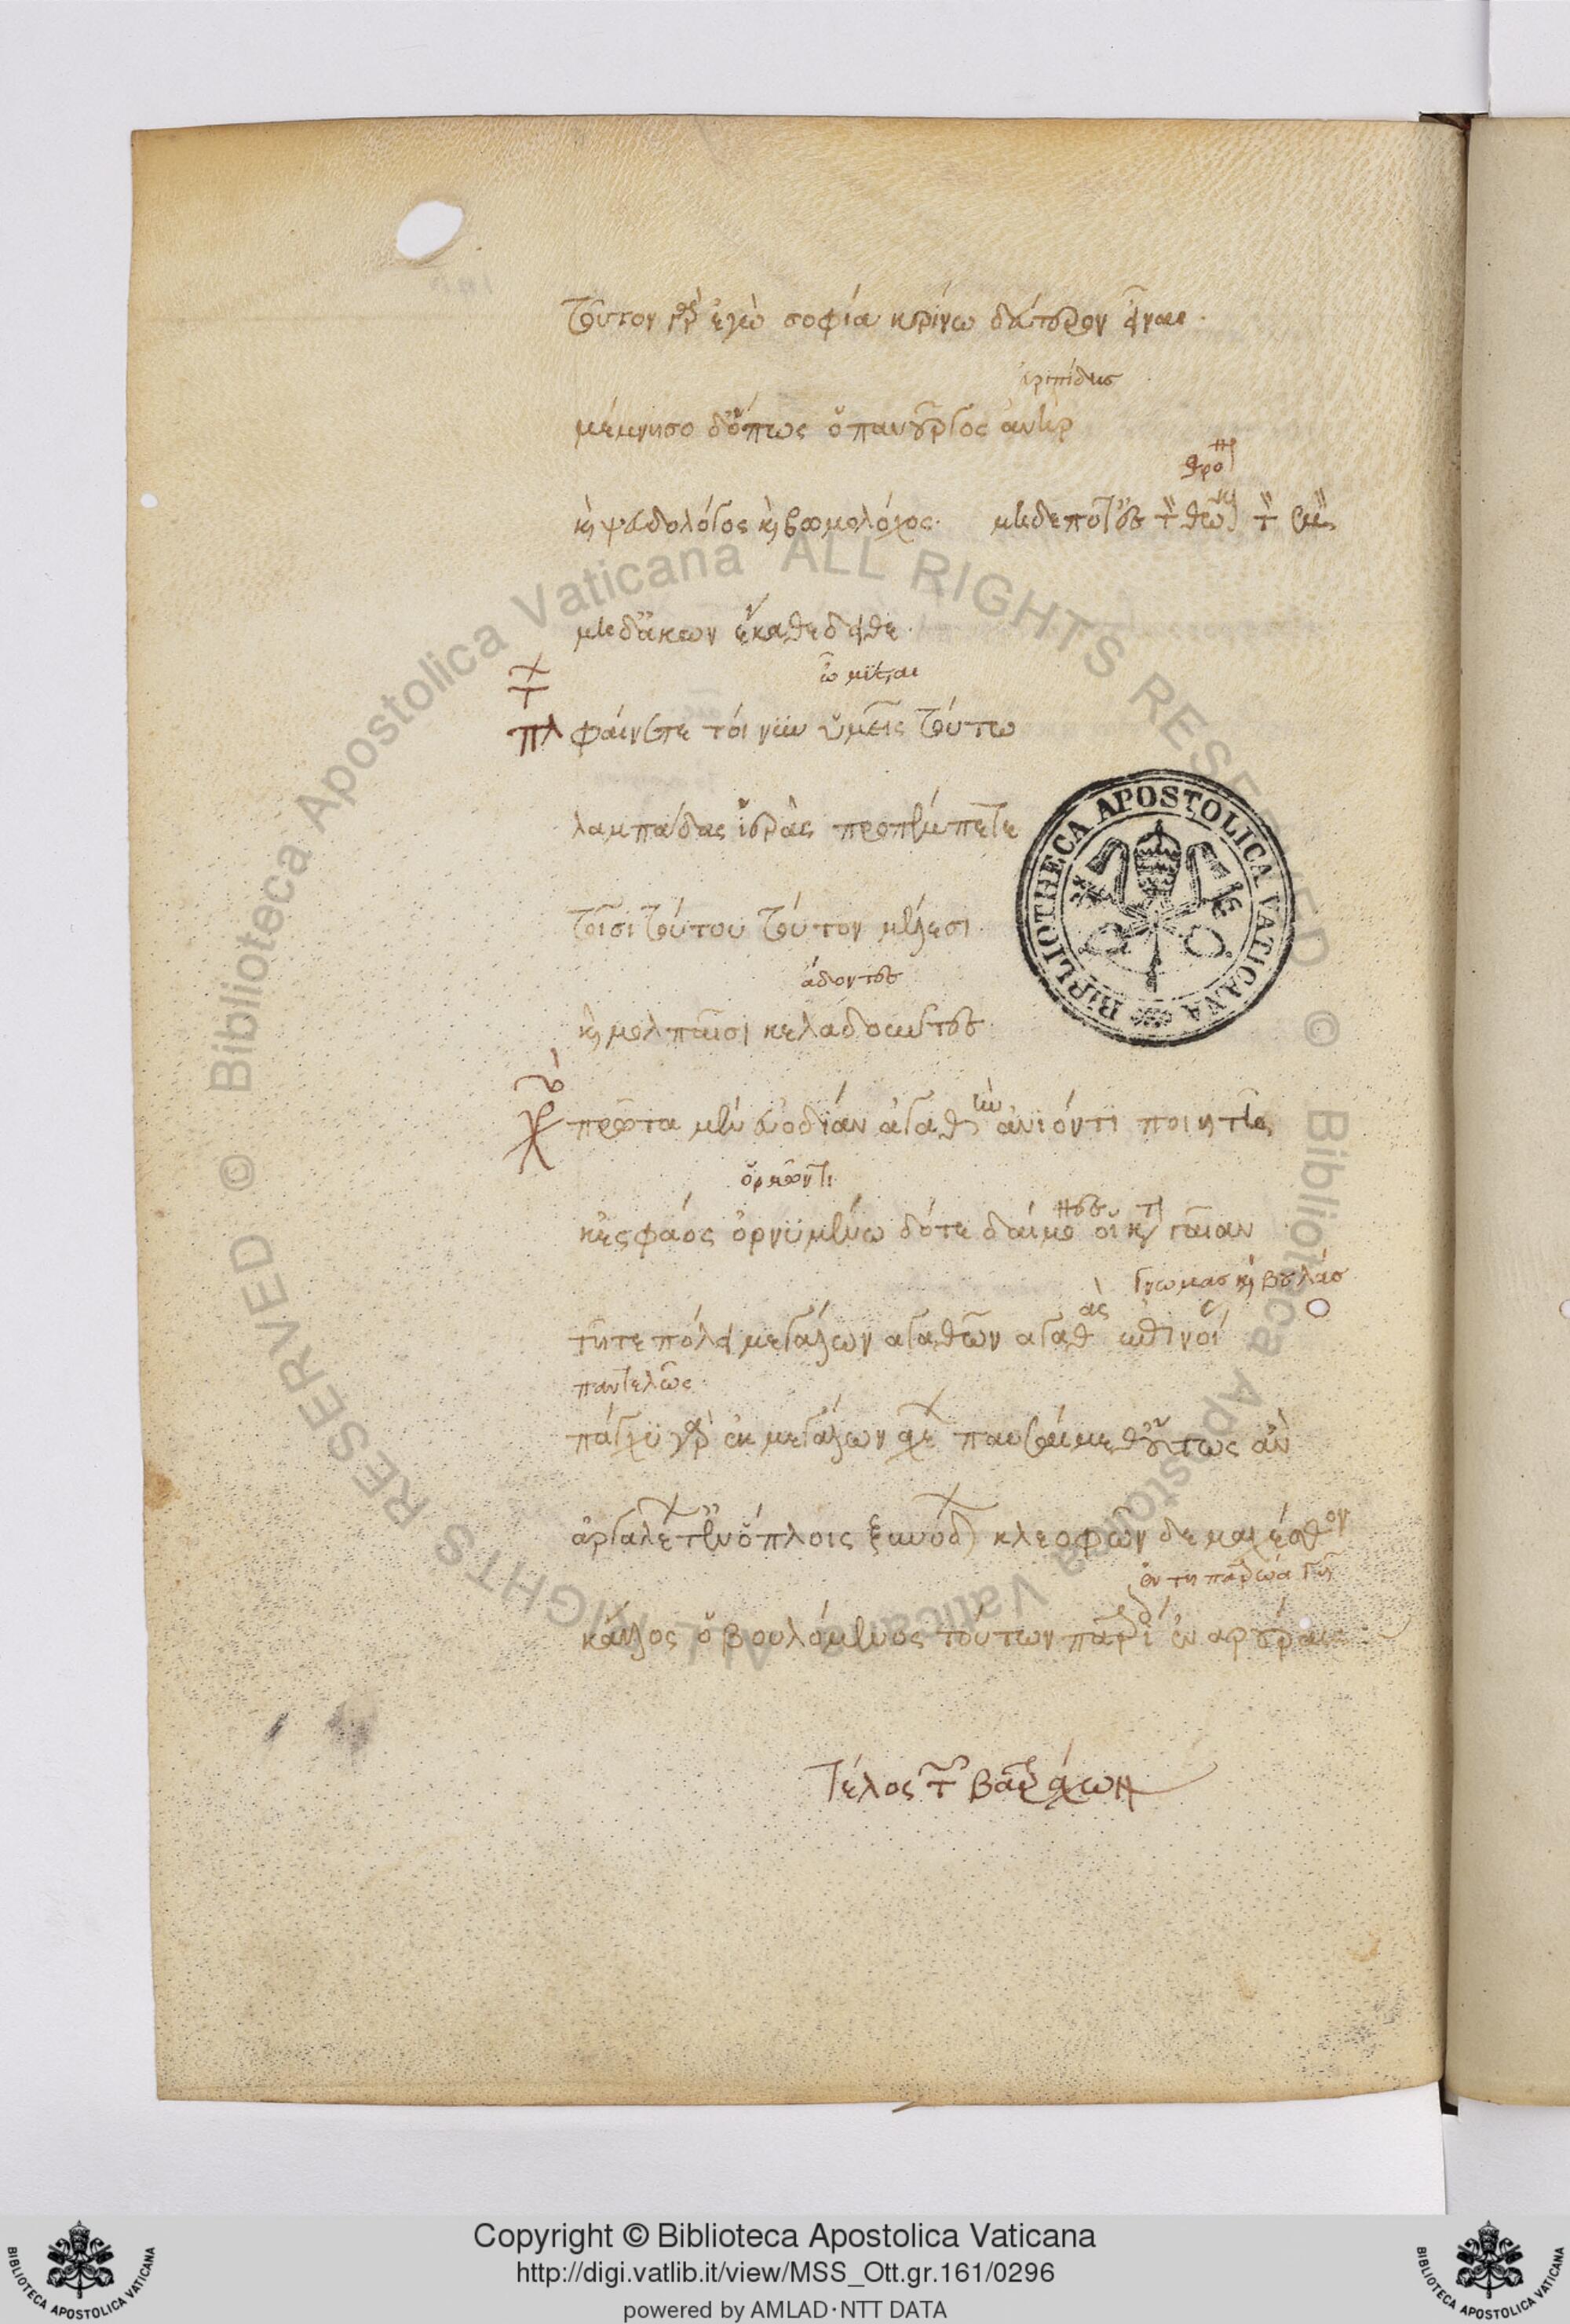 τοῦτον γὰρ ἐγὼ σοφία κρίνω δεύτερον εἶναι.
εὐριπίδης
μέμνησο δ' ὅπως ὁ πανοῦργος ἀνὴρ
θρόνον
καὶ ψευδολόγος καὶ βωμολόχος. μηδέποτ' ἐς τὸν θῶκον τὸν ἐμὸν
μηδ' ἄκων ἐγκαθεδεῖται.
ὦ μύσται
πλ φαίνετε τοίνυν ὑμεῖς τούτω
λαμπάδας ἱερὰς προπέμπετε
τοῖσι τούτου τοῦτον μέλεσι
ἄδοντες
καὶ μολπαῖσι κελαδοῦντες
χο πρῶτα μὲν εὐοδίαν ἀγαθὴν ἀνιόντι ποιητῆ
ὁρμῶντι
κἐς φάος ὀρνυμένω δότε δαίμονες οἱ κατὰ γαίαν
γνωμας καὶ βουλάς
τῆ τε πόλει μεγάλων ἀγαθῶν ἀγαθὰς ἐπινοίας
παντελῶς
πάγχυ γὰρ ἐκ μεγάλων ἀχέων παυσαίμεθ' οὕτως ἂν
ἀργαλέων τ' ἐν ὅπλοις ξυνόδων κλεοφῶν δὲ μαχέσθω
ἐν τῆ πατρώα γῆ
κἄλλος ὁ βουλόμενος τούτων πατρίοις ἐν ἀρούραις
Τέλος τῶν βατράχων
BIBLIOTHECA APOSTOLICA VATICANA
© Biblioteca Apostolica Vaticana ALL RIGHTS RESERVED © Biblioteca Apostolica Vaticana ALL RIGHTS RESERVED
Copyright © Biblioteca Apostolica Vaticana
http://digi.vatlib.it/view/MSS_Ott.gr.161/0296
powered by AMLAD·NTT DATA
BIBLIOTECA APOSTOLICA VATICANA
BIBLIOTECA APOSTOLICA VATICANA